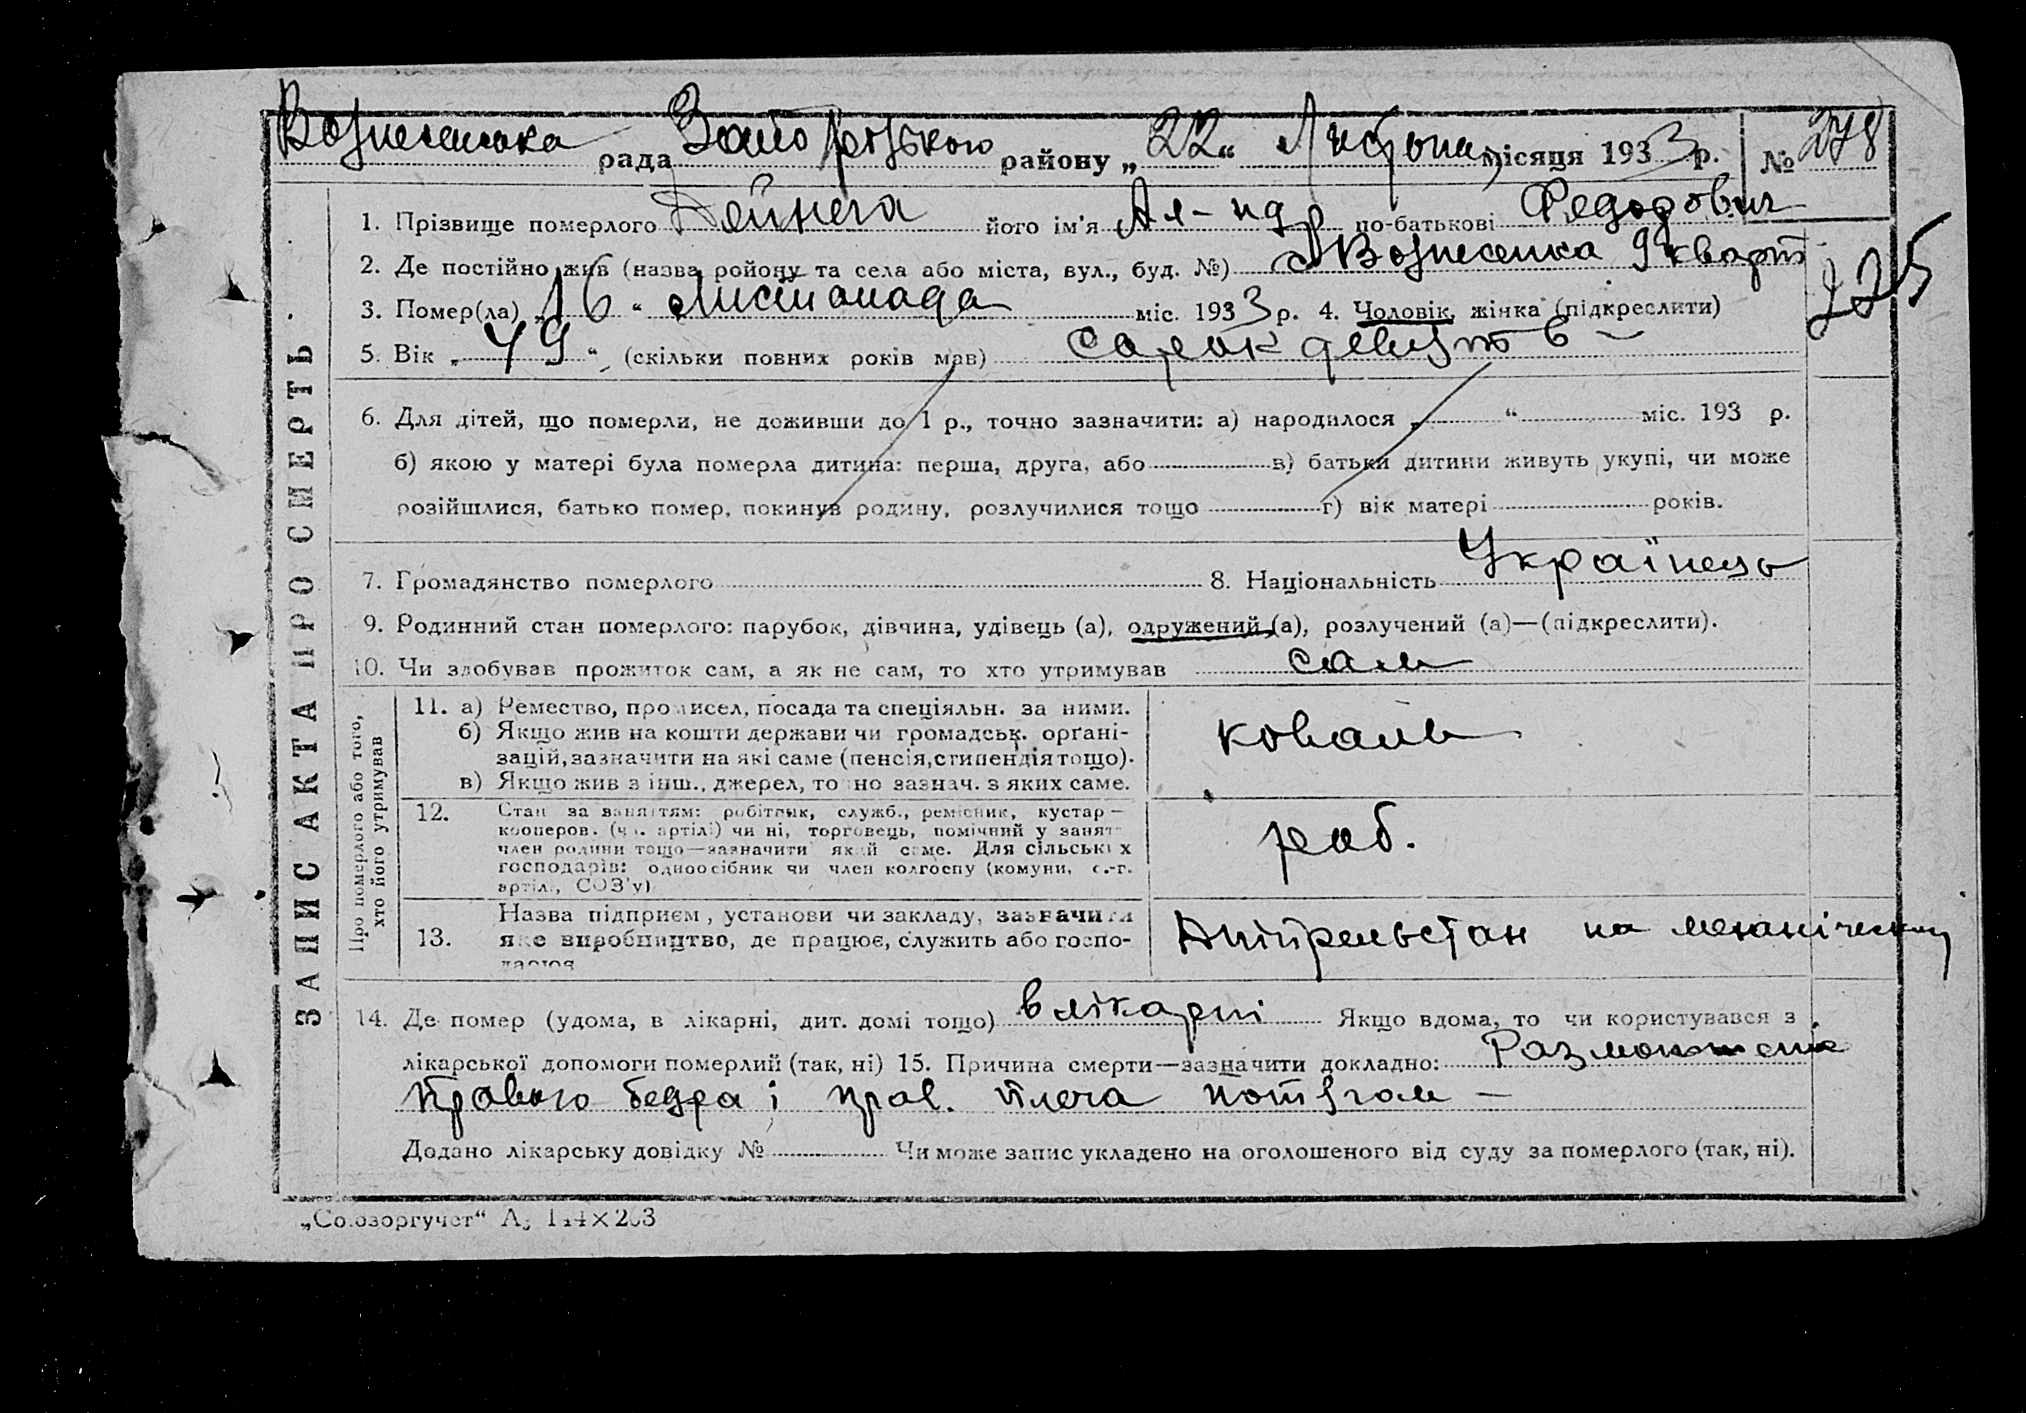 Вознесенська рада Запорізького району „22“ Листопа місяця 1933 р. № 278
1. Прізвище померлого Дейнега його ім'я Ал-ндр по-батькові Федорович
2. Де постійно жив (назва району та села або міста, вул., буд. №) с Вознесенка 9 кварт
225
3. Помер(ла) „16“ Листопада міс. 1933 р. 4. Чоловік, жінка (підкреслити)
5. Вік „49“, (скільки повних років мав) сорок девять
6. Для дітей, що померли, не доживши до 1 р., точно зазначити: а) народилося „ “ міс. 193 р.
б) якою у матері була померла дитина: перша, друга, або в) батьки дитини живуть укупі, чи може
розійшлися, батько помер, покинув родину, розлучилися тощо г) вік матері років.
7. Громадянство померлого 8. Національність Українець
9. Родинний стан померлого: парубок, дівчина, удівець (а), одружений (а), розлучений (а)—(підкреслити).
10. Чи здобував прожиток сам, а як не сам, то хто утримував сам
11. а) Ремество, промисел, посада та спеціяльн. за ними.
б) Якщо жив на кошти держави чи громадськ. орґані-
зацій, зазначити на які саме (пенсія, стипендія тощо).
в) Якщо жив з інш., джерел, точно зазнач. з яких саме.
коваль
12. Стан за заняттям: робітник, служб., ремісник, кустар—
кооперов. (чл. артілі) чи ні, торговець, помічний у занят-
член родини тощо—зазначити який саме. Для сільських
господарів: одноосібник чи член колгоспу (комуни, с.-г.
артілі, СОЗ'у)
роб.
13. Назва підприєм, установи чи закладу, зазначити
яке виробництво, де працює, служить або госпо-
дарює
Дніпрельстан на механіческ
Про померлого або того,
хто його утримував
ЗАПИС АКТА ПРО СМЕРТЬ.
14. Де помер (удома, в лікарні, дит. домі тощо) в лікарні Якщо вдома, то чи користувався з
лікарської допомоги померлий (так, ні) 15. Причина смерти—зазначити докладно:
правого бедра і прав. плеча потягом —
Додано лікарську довідку № Чи може запис укладено на оголошеного від суду за померлого (так, ні).
„Союзоргучет“ А5 144×203